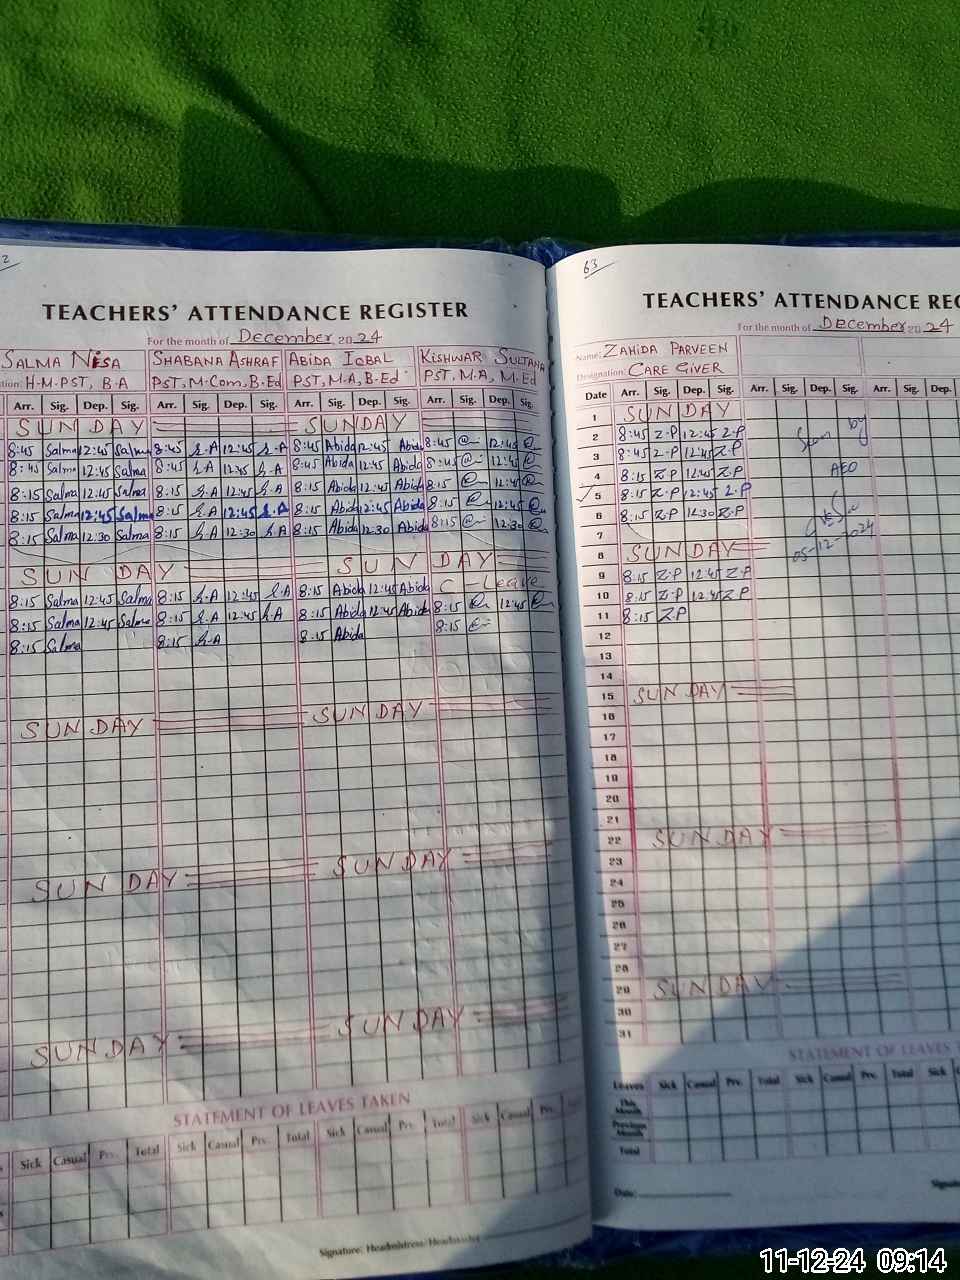 2
TEACHERS' ATTENDANCE REGISTER
For the month of December 2024
SALMA NISA SHABANA ASHRAF ABIDA IQBAL KISHWAR SULTANA
tion: H-M-PST, B.A PST, M.Com, B.Ed PST, M.A, B.Ed PST, M.A, M.Ed
Arr. Sig. Dep. Sig. Arr. Sig. Dep. Sig. Arr. Sig. Dep. Sig. Arr. Sig. Dep. Sig.
SUNDAY SUNDAY
8:45 Salma 12:45 Salma 8:45 S.A 12:45 S.A 8:45 Abida 12:45 Abida 8:45 12:45
8:45 Salma 12:45 Salma 8:45 S.A 12:45 S.A 8:45 Abida 12:45 Abida 8:45 12:45
8:15 Salma 12:45 Salma 8:15 S.A 12:45 S.A 8:15 Abida 12:45 Abida 8:15 12:45
8:15 Salma 12:45 Salma 8:15 S.A 12:45 S.A 8:15 Abida 12:45 Abida 8:15 12:45
8:15 Salma 12:30 Salma 8:15 S.A 12:30 S.A 8:15 Abida 12:30 Abida 8:15 12:30
SUNDAY SUNDAY
8:15 Salma 12:45 Salma 8:15 S.A 12:45 S.A 8:15 Abida 12:45 Abida C-Leave
8:15 Salma 12:45 Salma 8:15 S.A 12:45 S.A 8:15 Abida 12:45 Abida 8:15 12:45
8:15 Salma 8:15 S.A 8:15 Abida 8:15
SUNDAY SUNDAY
SUNDAY SUNDAY
SUNDAY SUNDAY
STATEMENT OF LEAVES TAKEN
Sick Casual Prv. Total Sick Casual Prv. Total Sick Casual Prv. Total Sick Casual Prv.
Signature: Headmistress/Headmaster
63
TEACHERS' ATTENDANCE REG
For the month of December 2024
Name: ZAHIDA PARVEEN
Designation: CARE GIVER
Date Arr. Sig. Dep. Sig. Arr. Sig. Dep. Sig. Arr. Sig. Dep.
1 SUNDAY
2 8:45 Z.P 12:45 Z.P
3 8:45 Z.P 12:45 Z.P
4 8:15 Z.P 12:45 Z.P
5 8:15 Z.P 12:45 Z.P
6 8:15 Z.P 12:30 Z.P
7
8 SUNDAY
9 8:15 Z.P 12:45 Z.P
10 8:15 Z.P 12:45 Z.P
11 8:15 Z.P
12
13
14
15 SUNDAY
16
17
18
19
20
21
22 SUNDAY
23
24
25
26
27
28
29 SUNDAY
30
31
Seen by
AEO
05-12-2024
STATEMENT OF LEAVES
Leaves Sick Casual Prv. Total Sick Casual Prv. Total Sick
This Month
Previous Month
Total
Date:
Signa
11-12-24 09:14